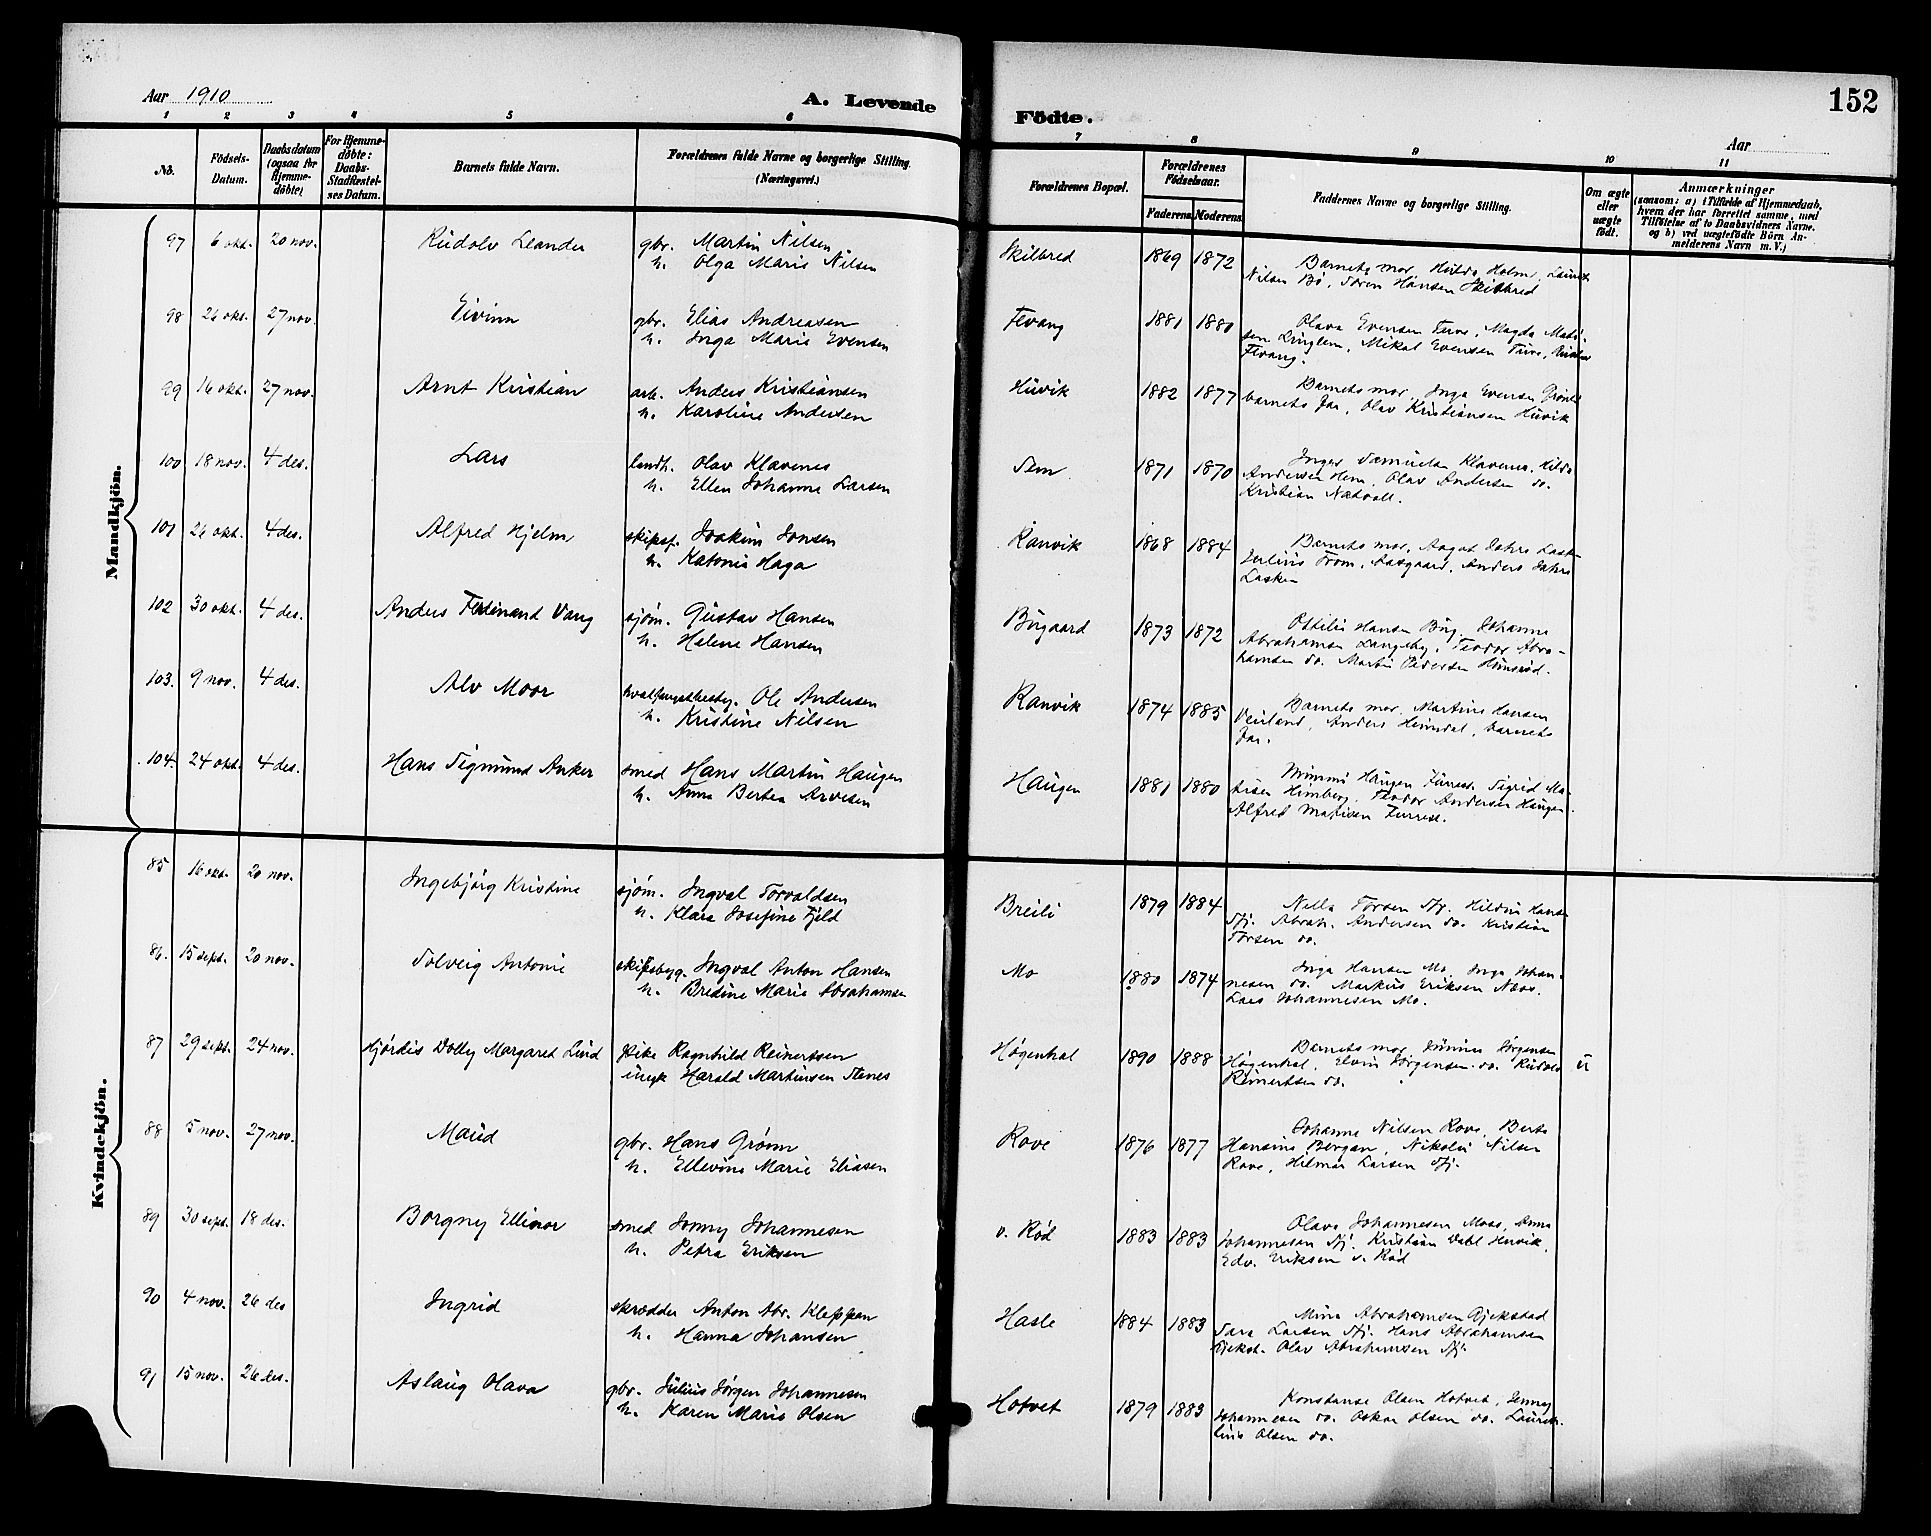 Aar 1910
A. Levende
Födte.
152
Aar
1 2 3 4 5 6 7 8 9 10 11
No.
Födsels-Datum.
Daabsdatum (ogsaa for Hjemme-döbte)
For Hjemme-döbte: Daabs-Stadfæstel-ses Datum.
Barnets fulde Navn.
Forældrenes fulde Navne og borgerlige Stilling. (Næringsvei.)
Forældrenes Bopæl.
Forældrenes Födselsaar.
Faderens. Moderens.
Faddernes Navne og borgerlige Stilling.
Om ægte eller uægte født.
Anmærkninger (saasom: a) i Tilfælde af Hjemmedaab, hvem der har forrettet samme, med Tilföielse af to Daabsvidners Navne. og b) ved uægtefödte Börn Anmelderens Navn m. V.)
Mandkjön.
97 6 okt. 20 nov. Rudolv Leander gbr. Martin Nilsen Skilbred 1869 1872 Barnets mor, Hulda Holm,
h. Olga Marie Nilsen Nilsen Bö, Søren Hansen Skilbred
98 26 okt. 27 nov. Eivinn gbr. Elias Andreasen Fevang 1881 1880 Olava Evensen
h. Inga Marie Evensen Mikal Evensen
Fevang.
99 16 okt. 27 nov. Arnt Kristian arb. Anders Kristiansen Huvik 1882 1877 Barnets mor, Inga Evensen
h. Karoline Andersen barnets far, Olav Kristiansen Huvik
100 18 nov. 4 des. Lars landh. Olav Klavenes Sem 1871 1870 Inger Samuelsen Klavenes, Hilda
h. Ellen Johanne Larsen Andersen Hem, Olav Andersen do.
Kristian
101 26 okt. 4 des. Alfred Hjelm skipsf. Joakim Jonsen Ranvik 1868 1884 Barnets mor, Aagot
h. Katonia Haga Julius From, Aasgaard, Anders
102 30 okt. 4 des. Anders Ferdinand Vang sjøm. Gustav Hansen Bugaard 1873 1872 Ottilie Hansen Bug, Johanne
h. Helene Hansen Abrahamsen Langeby, Teodor Abra-
hamsen do. Martin Pedersen
103. 9 nov. 4 des. Alv Moor hvalfangstbesty. Ole Andersen Ranvik 1874 1885 Barnets mor, Martine Hansen
h. Kristine Nilsen Veirland, Anders Heimdal, barnets
far.
104. 24 okt. 4 des. Hans Sigmund Anker smed Hans Martin Haugen Haugen 1881 1880 Mimmi Haugen Furrest, Sigrid Ma-
h. Anna Bertea Arvesen tisen Himberg, Teodor Andersen Haugen.
Alfred Matisen Furrest.
Kvindekjön.
85 16 okt. 20 nov. Ingebjörg Kristine sjøm. Ingval Torvaldsen Breili 1879 1884 Nella Torsen Sfj. Hildur Hansen
h. Klara Josefine Fjeld Sfj. Abrah. Andersen do. Kristian
Torsen do.
86. 15 sept. 20 nov. Solveig Antonie skipsbyg. Ingval Anton Hansen Mo 1880 1874 Inga Hansen Mo, Inga Johan-
h. Bredine Marie Abrahamsen nesen do. Markus Eriksen Næss.
Lars Johannesen Mo.
87 29 sept. 24 nov. Hjördis Dolly Margaret Lind pike Ragnhild Reinertssen Høgenhal 1890 1888 Barnets mor, Jørgensen u
ungk Harald Martinsen Stenes Høgenhal, Elvin Jørgensen do. Rudolv
Reinertsen do.
88 5 nov. 27 nov. Maud gbr. Hans Grønn Rove 1876 1877 Johanne Nilsen Rove, Berte
h. Ellevine Marie Eliasen Hansine Bergan, Nikolai Nilsen
Rove, Hilmar Larsen Sfj.
89 30 sept. 18 des. Borgny Ellinor smed Jonny Johannesen v. Rød 1883 1883 Olava Johannesen Moss, Anna
h. Petra Eriksen Johannesen Sfj. Kristian Dahl Huvik,
Edv. Eriksen v. Rød
90 4 nov. 26 des Ingrid skrædder Anton Abr. Kleppan Hasle 1884 1883 Mina Abrahamsen Gjekstad
h. Hanna Johansen Sara Larsen Sfj. Hans Abrahamsen
Gjekst. Olav Abrahamsen Sfj.
91 15 nov. 26 des. Aslaug Olava gbr. Julius Jørgen Johannesen Hotvet 1879 1883 Konstanse Olsen Hotvet, Jenny
h. Karen Marie Olsen Johannesen do. Oskar Olsen do. Lauren-
tius Olsen do.